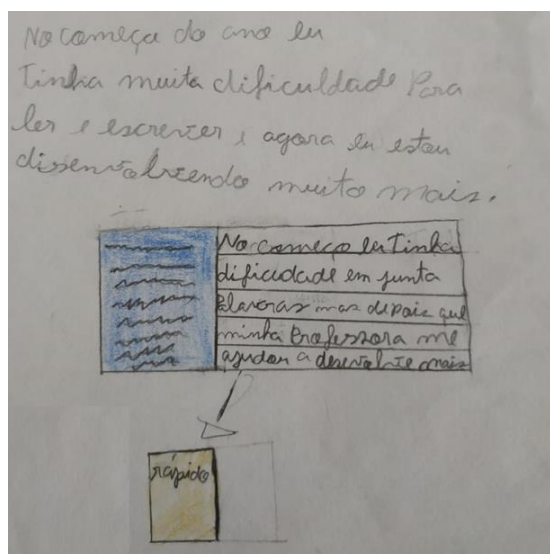 No começa do ano eu
Tinha muita dificuldade Para
ler e escrever e agora eu estou
disenvolvendo muito mais.
No começo eu Tinha
dificudade em junta
Plavoras mas depois que
minha Professora me
ajudou a desenvolve mais
rápido